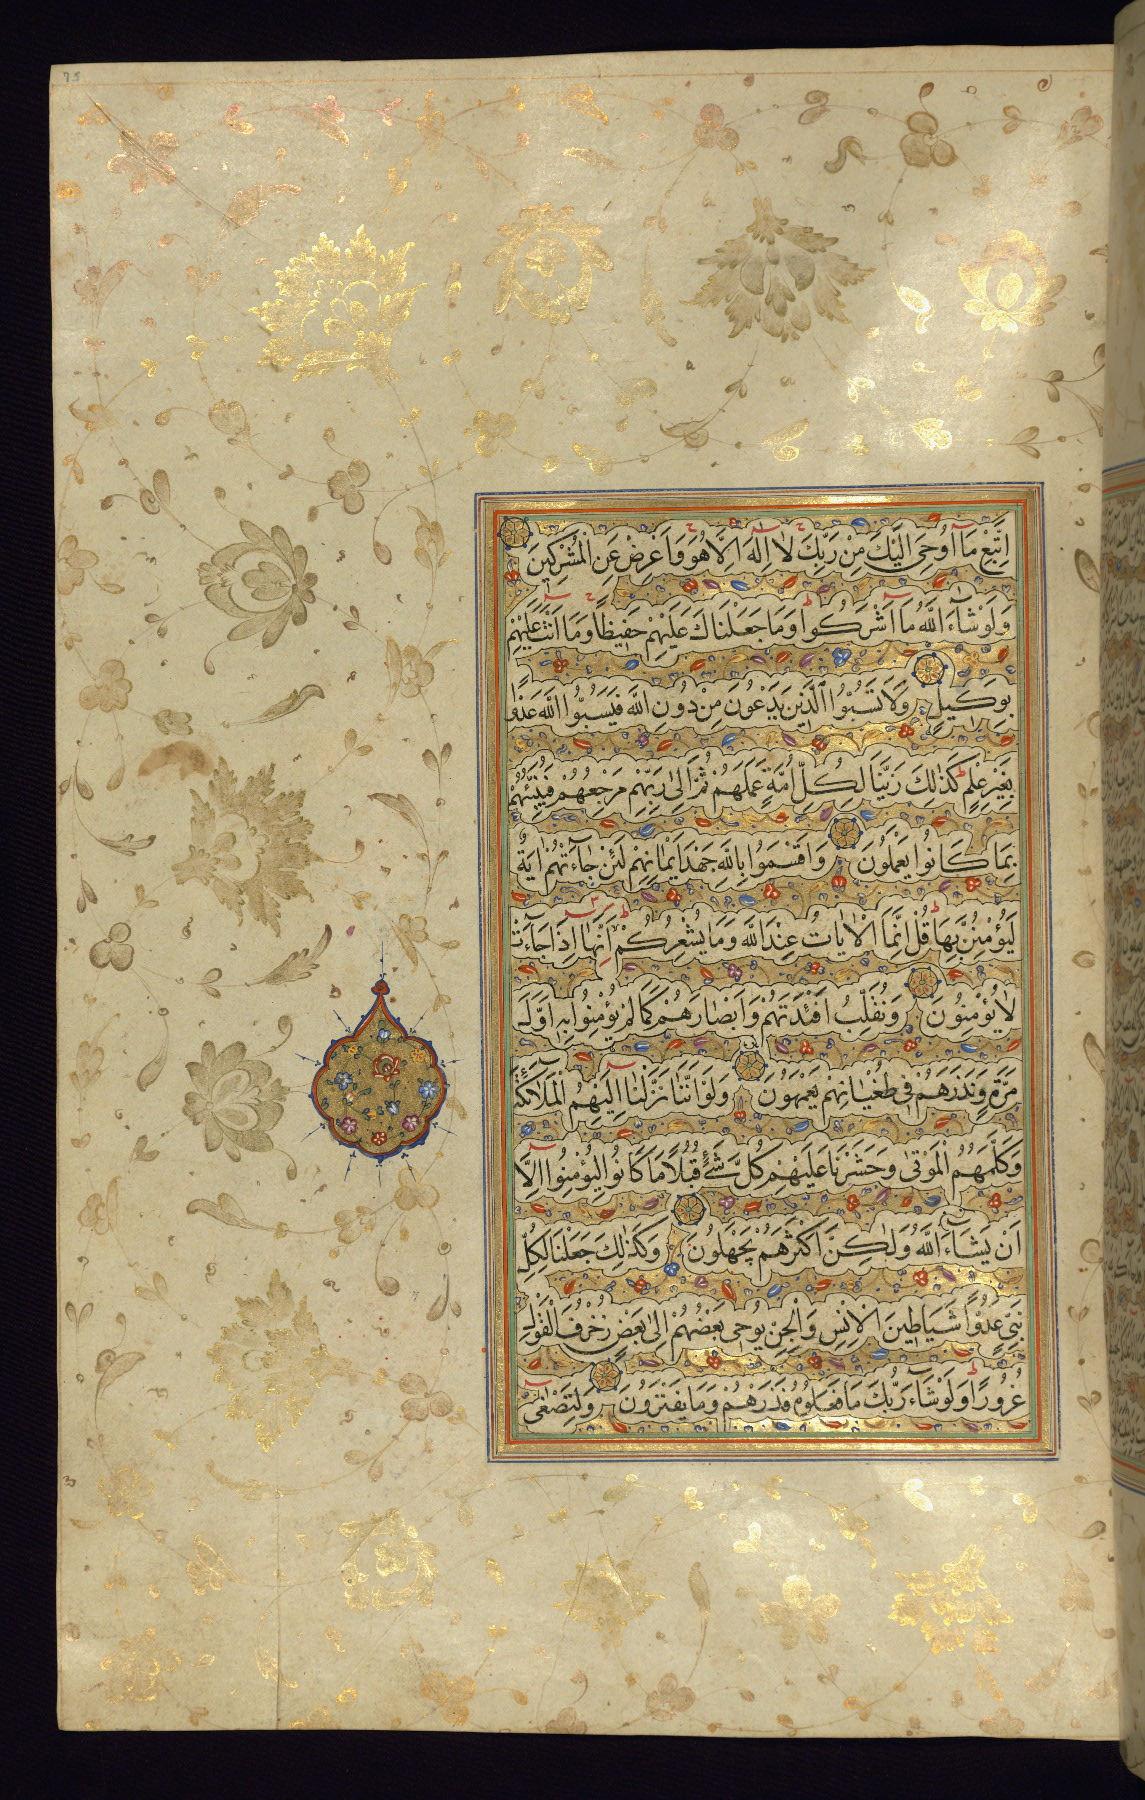 75
اِتَّبِعْ مَا اُوحِيَ اِلَيْكَ مِنْ رَبِّكَ لَا اِلٰهَ اِلَّا هُوَ وَاَعْرِضْ عَنِ الْمُشْرِكِينَ
وَلَوْ شَاءَ اللّٰهُ مَا اَشْرَكُوا وَمَا جَعَلْنَاكَ عَلَيْهِمْ حَفِيظًا وَمَا اَنْتَ عَلَيْهِمْ
بِوَكِيلٍ وَلَا تَسُبُّوا الَّذِينَ يَدْعُونَ مِنْ دُونِ اللّٰهِ فَيَسُبُّوا اللّٰهَ عَدْوًا
بِغَيْرِ عِلْمٍ كَذٰلِكَ زَيَّنَّا لِكُلِّ اُمَّةٍ عَمَلَهُمْ ثُمَّ اِلٰى رَبِّهِمْ مَرْجِعُهُمْ فَيُنَبِّئُهُمْ
بِمَا كَانُوا يَعْمَلُونَ وَاَقْسَمُوا بِاللّٰهِ جَهْدَ اَيْمَانِهِمْ لَئِنْ جَاءَتْهُمْ اٰيَةٌ
لَيُؤْمِنُنَّ بِهَا قُلْ اِنَّمَا الْاٰيَاتُ عِنْدَ اللّٰهِ وَمَا يُشْعِرُكُمْ اَنَّهَا اِذَا جَاءَتْ
لَا يُؤْمِنُونَ وَنُقَلِّبُ اَفْئِدَتَهُمْ وَاَبْصَارَهُمْ كَمَا لَمْ يُؤْمِنُوا بِهِ اَوَّلَ
مَرَّةٍ وَنَذَرُهُمْ فِي طُغْيَانِهِمْ يَعْمَهُونَ وَلَوْ اَنَّنَا نَزَّلْنَا اِلَيْهِمُ الْمَلَائِكَةَ
وَكَلَّمَهُمُ الْمَوْتٰى وَحَشَرْنَا عَلَيْهِمْ كُلَّ شَيْءٍ قُبُلًا مَا كَانُوا لِيُؤْمِنُوا اِلَّا
اَنْ يَشَاءَ اللّٰهُ وَلٰكِنَّ اَكْثَرَهُمْ يَجْهَلُونَ وَكَذٰلِكَ جَعَلْنَا لِكُلِّ
نَبِيٍّ عَدُوًّا شَيَاطِينَ الْاِنْسِ وَالْجِنِّ يُوحِي بَعْضُهُمْ اِلٰى بَعْضٍ زُخْرُفَ الْقَوْلِ
غُرُورًا وَلَوْ شَاءَ رَبُّكَ مَا فَعَلُوهُ فَذَرْهُمْ وَمَا يَفْتَرُونَ وَلِتَصْغٰى